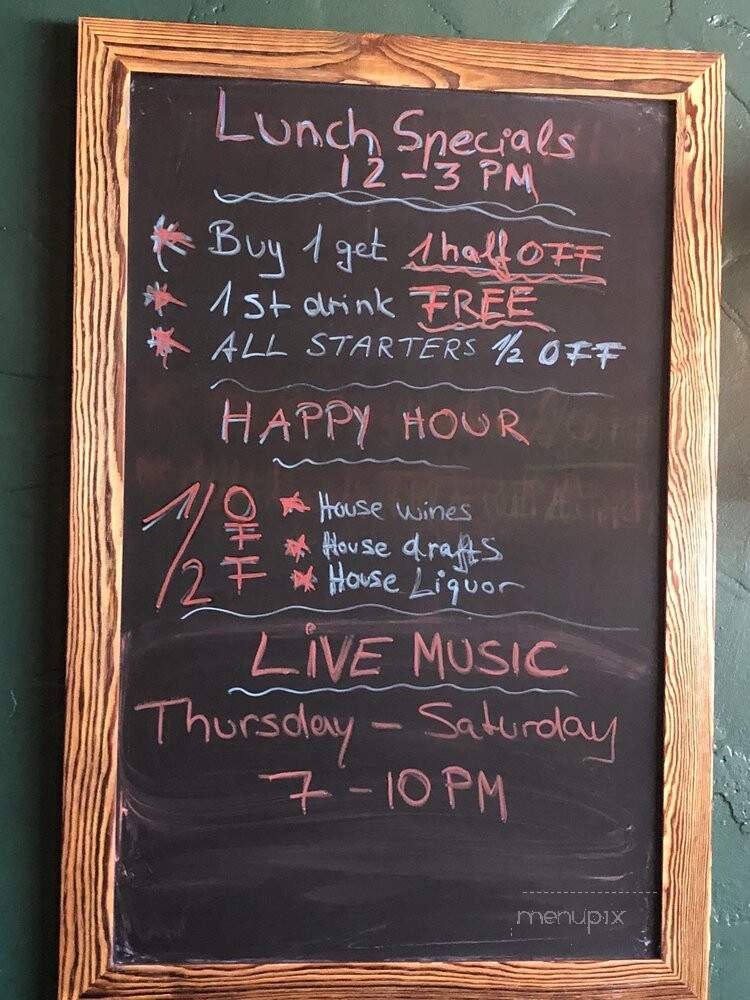 Lunch Specials
12-3 PM
Buy 1 get 1 half OFF
1st drink FREE
ALL STARTERS 1/2 OFF
HAPPY HOUR
1/2 OFF
House wines
House drafts
House Liquor
LiVE MUSIC
Thursday - Saturday
7-10 PM
menupix